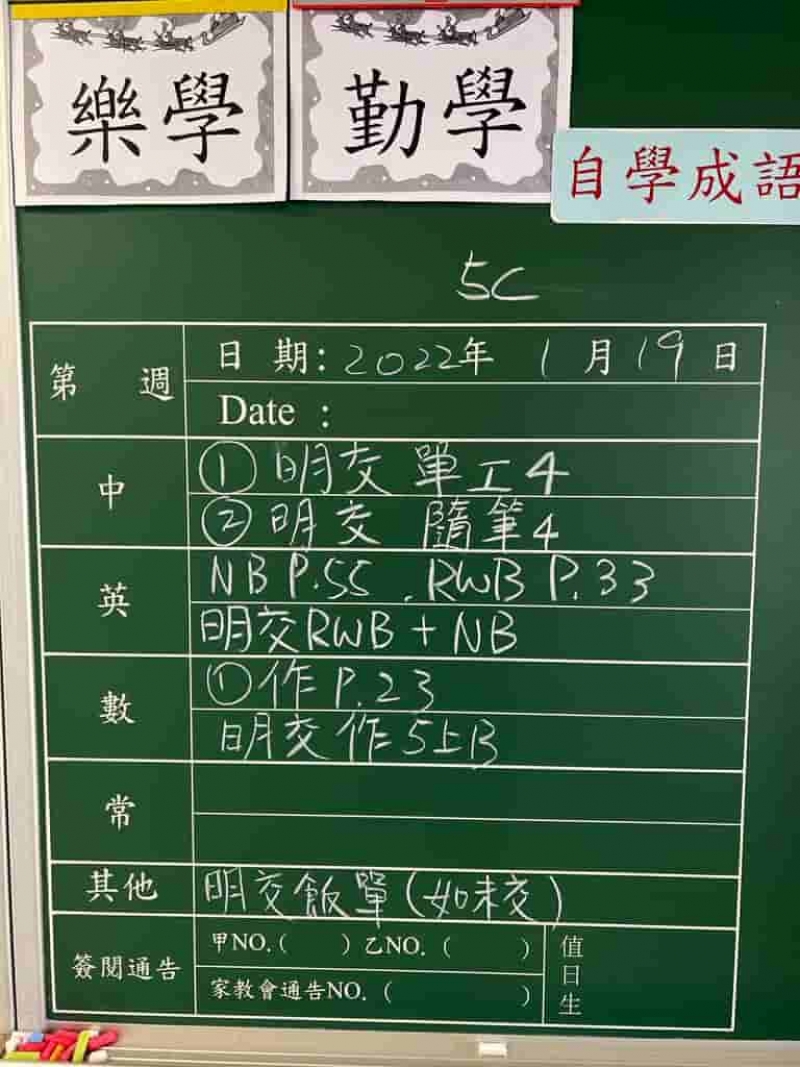 樂學
勤學
自學成語
5C
第 週
日 期: 2022年 1月19日
Date :
中
① 明交 單工4
② 明交 隨筆4
英
NB P.55 . RWB P.33
明交RWB + NB
數
① 作 P.23
明交作5上B
常
其他
明交飯單(如未交)
簽閱通告
甲NO.( ) 乙NO. ( )
家教會通告NO. ( )
值日生